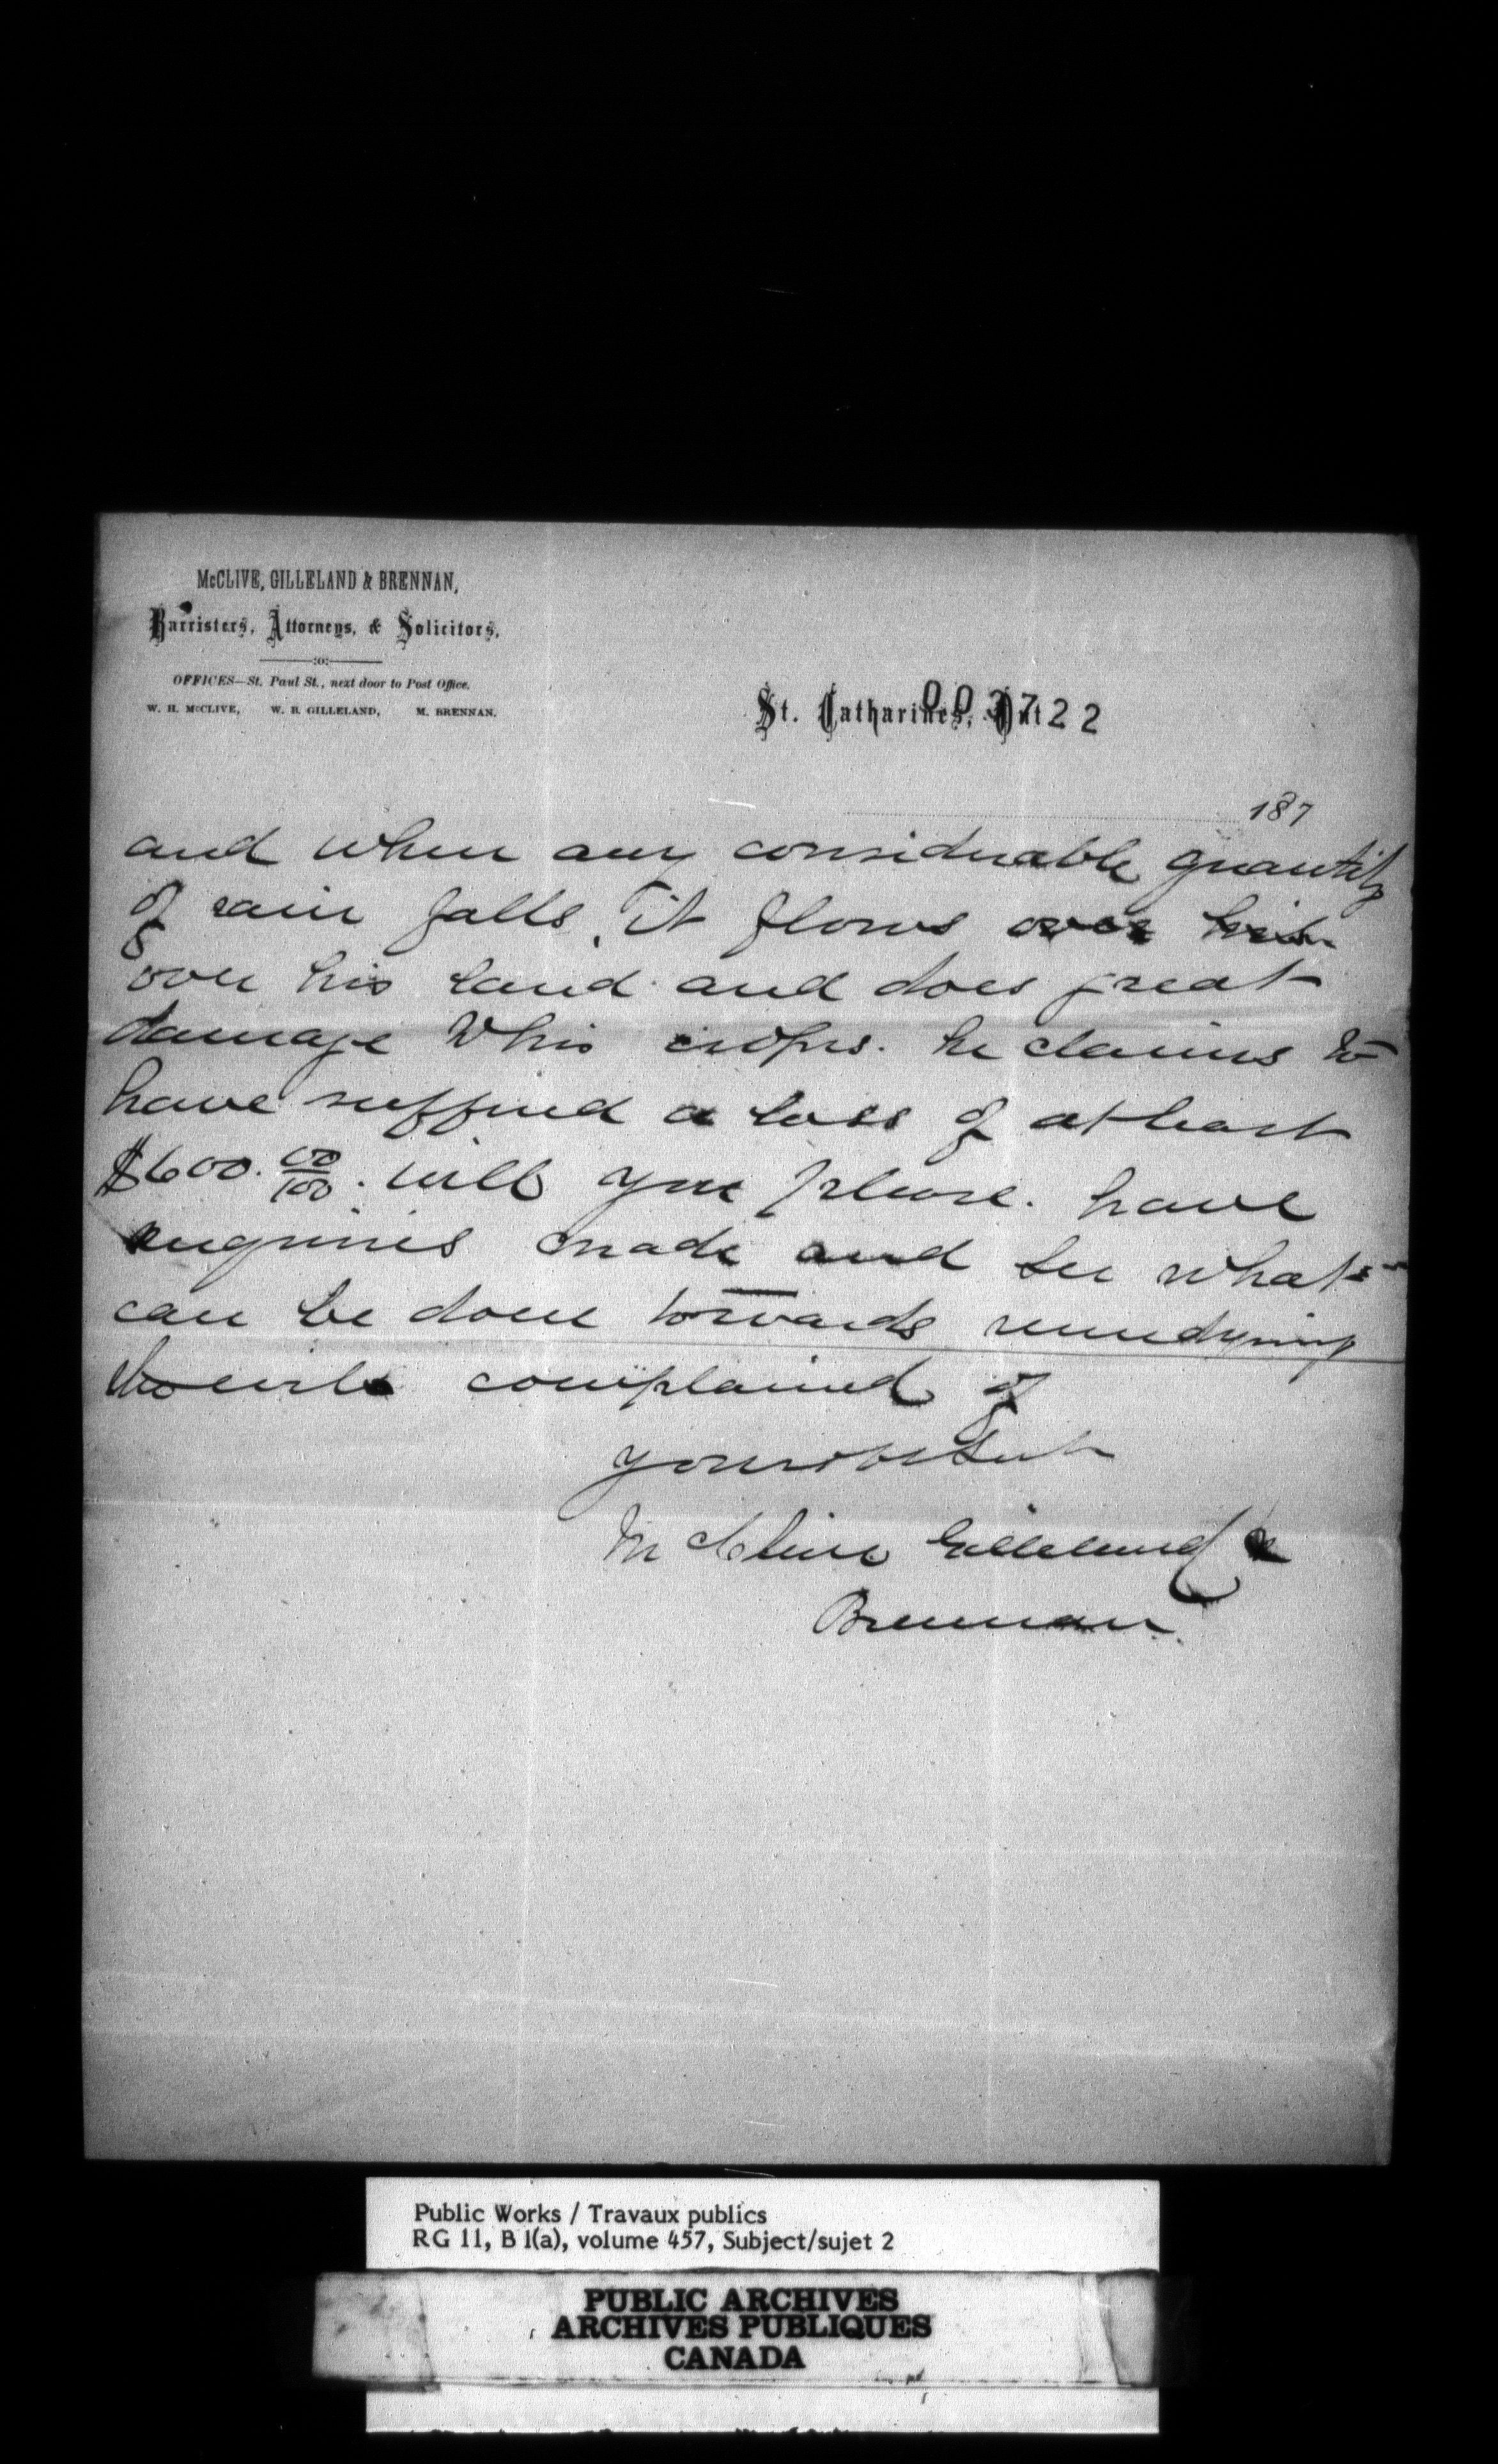 McCLIVE, GILLELAND & BRENNAN,
Barristers, Attorneys, & Solicitors,
:o:
OFFICES—St. Paul St., next door to Post Office.
W. H. McCLIVE, W. B. GILLELAND, M. BRENNAN.
St. Catharines, Ont
003722
187
and when any considerable quantity
of rain falls, it flows over him
over his land and does great
damage to his crops. he claims to
have suffered a loss of at least
$600.00/100. will you please. have
enquiries made and see what
can be done towards remedying
the evils complained of
yours obt Svts
McClive Gilleland &
Brennan.
Public Works / Travaux publics
RG 11, B 1(a), volume 457, Subject/sujet 2
PUBLIC ARCHIVES
ARCHIVES PUBLIQUES
CANADA